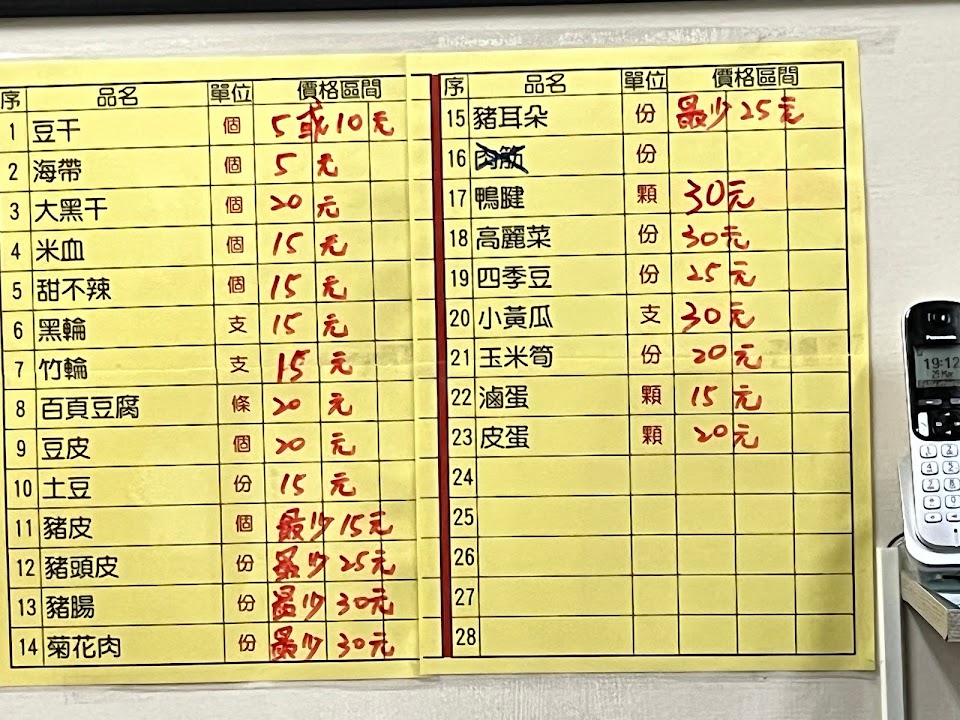 序 品名 單位 價格區間
1 豆干 個 5或10元
2 海帶 個 5元
3 大黑干 個 20元
4 米血 個 15元
5 甜不辣 個 15元
6 黑輪 支 15元
7 竹輪 支 15元
8 百頁豆腐 條 20元
9 豆皮 個 20元
10 土豆 份 15元
11 豬皮 個 最少15元
12 豬頭皮 份 最少25元
13 豬腸 份 最少30元
14 菊花肉 份 最少30元
序 品名 單位 價格區間
15 豬耳朵 份 最少25元
16 肉筋 份
17 鴨腱 顆 30元
18 高麗菜 份 30元
19 四季豆 份 25元
20 小黃瓜 支 30元
21 玉米筍 份 20元
22 滷蛋 顆 15元
23 皮蛋 顆 20元
24
25
26
27
28
Panasonic
19:12